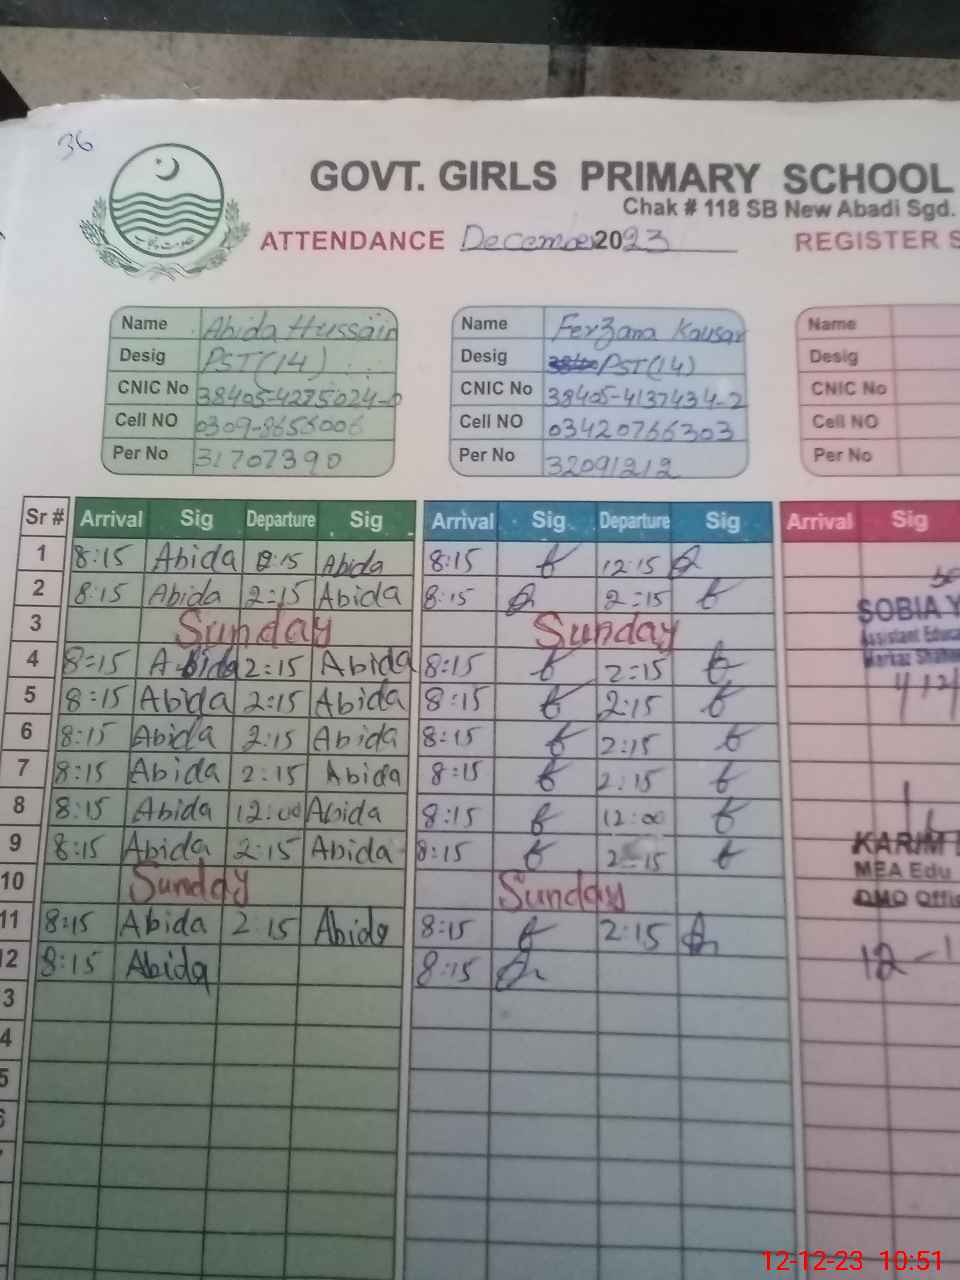 36
GOVT. GIRLS PRIMARY SCHOOL
Chak # 118 SB New Abadi Sgd.
ATTENDANCE December 2023 REGISTER S
Name Abida Hussain Name Ferzana Kausar Name
Desig PST(14) Desig PST(14) Desig
CNIC No 38405-4275024-0 CNIC No 38405-4137434-2 CNIC No
Cell NO 0309-8656006 Cell NO 03420766303 Cell NO
Per No 31707390 Per No 32091212 Per No
Sr # Arrival Sig Departure Sig Arrival Sig Departure Sig Arrival Sig
1 8:15 Abida 12:15 Abida 8:15 12:15
2 8:15 Abida 2:15 Abida 8:15 2:15
3 Sunday Sunday SOBIA Y
4 8:15 Abida 2:15 Abida 8:15 2:15
5 8:15 Abida 2:15 Abida 8:15 2:15
6 8:15 Abida 2:15 Abida 8:15 2:15
7 8:15 Abida 2:15 Abida 8:15 2:15
8 8:15 Abida 12:00 Abida 8:15 12:00
9 8:15 Abida 2:15 Abida 8:15 2:15 KARIM
10 Sunday Sunday MEA Edu
DMO Offic
11 8:15 Abida 2:15 Abida 8:15 2:15
12 8:15 Abida 8:15 12-1
3
4
5
12-12-23 10:51